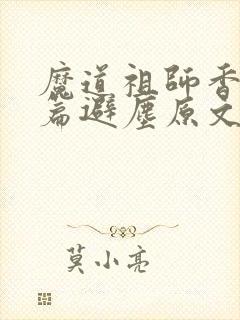 魔道祖師香
篇避塵原文
莫小亮